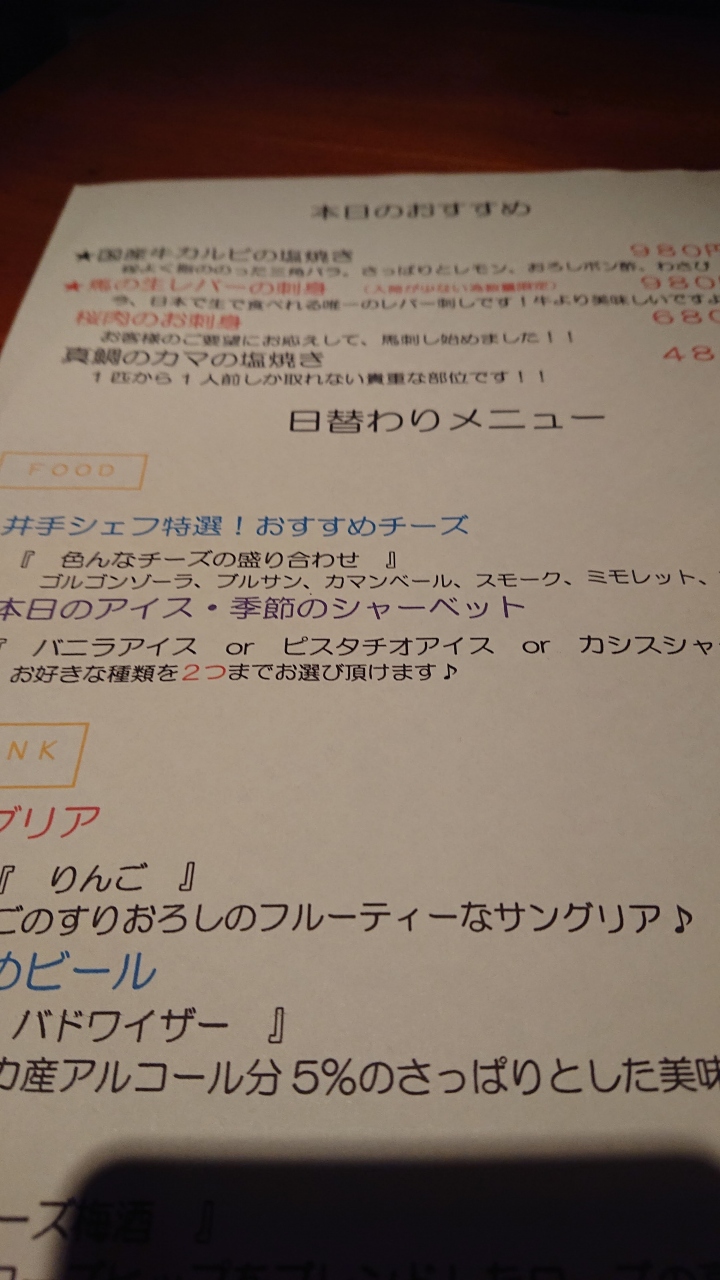 本日のおすすめ
★国産牛カルビの塩焼き 980円
程よく脂ののった三角バラ。さっぱりとレモン、おろしポン酢、わさび
★馬の生レバーの刺身 (入荷が少ない為数量限定) 980
今、日本で生で食べれる唯一のレバー刺しです！牛より美味しいですよ
桜肉のお刺身 680
お客様のご要望にお応えして、馬刺し始めました！！
真鯛のカマの塩焼き 48
1匹から1人前しか取れない貴重な部位です！！
日替わりメニュー
FOOD
井手シェフ特選！おすすめチーズ
『 色んなチーズの盛り合わせ 』
ゴルゴンゾーラ、ブルサン、カマンベール、スモーク、ミモレット、
本日のアイス・季節のシャーベット
『 バニラアイス or ピスタチオアイス or カシスシャ
お好きな種類を2つまでお選び頂けます♪
NK
グリア
『 りんご 』
ごのすりおろしのフルーティーなサングリア♪
めビール
バドワイザー 』
カ産アルコール分5%のさっぱりとした美味
ーズ梅酒 』